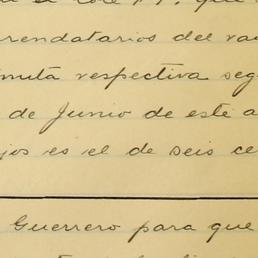 rendatarios del ra
muta respectiva seg
de Junio de este a
jos es el de seis ce
Guerrero para que